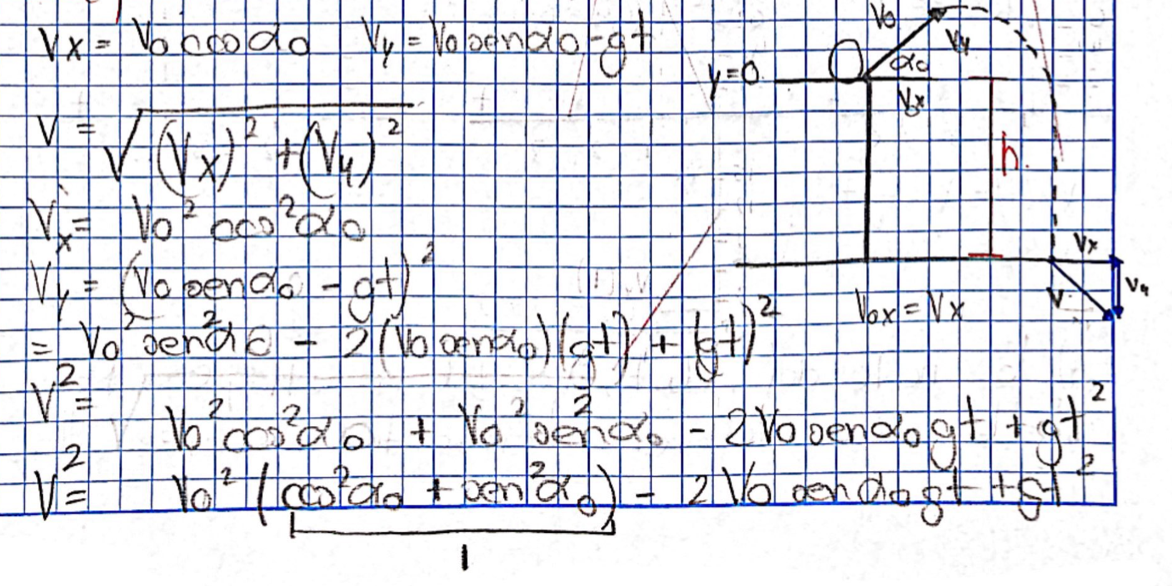 Vx = V₀ cos α₀   Vy = V₀ sen α₀ - gt
V = √((Vx)² + (Vy)²)
Vx = V₀² cos² α₀
Vy = (V₀ sen α₀ - gt)²
= V₀² sen² α₀ - 2(V₀ sen α₀)(gt) + (gt)²
V² =
V₀² cos² α₀ + V₀² sen² α₀ - 2V₀ sen α₀ gt + gt²
V² = V₀² (cos² α₀ + sen² α₀) - 2V₀ sen α₀ gt + gt²
1
V₀
Vy
α₀
y=0
O
Vx
h
Vx
Vy
V
V₀x = Vx